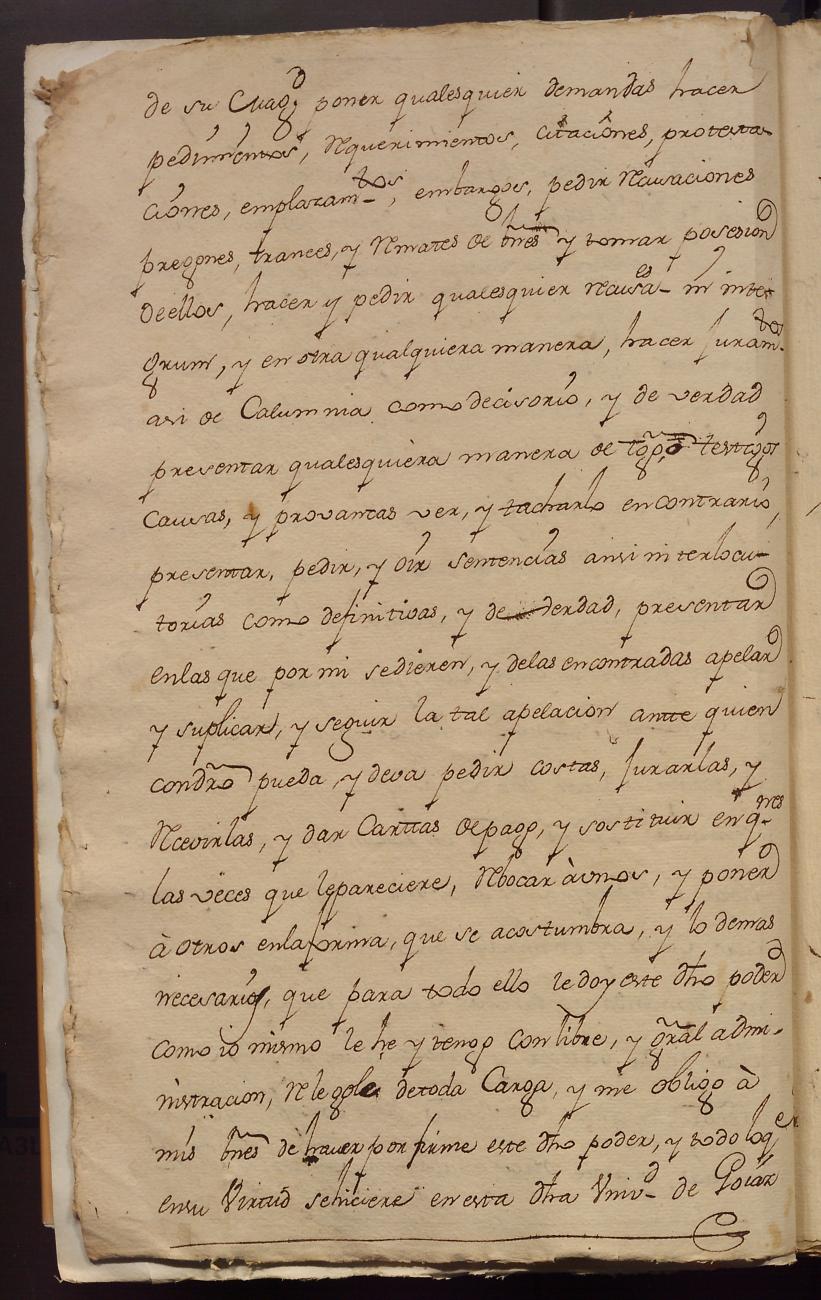 de su Cuago poner qualesquier demandas hacer
pedimentos, Requerimientos, citaciones, protesta-
ciones, emplazamtos, embargos, pedir Recusaciones
pregones, trances, y Remates de bnes y tomar posesion
de ellos, hacer y pedir qualesquier recusaes in inte-
grum, y en otra qualquiera manera, hacer Juramtos
asi de Calumnia como decisorio, y de verdad
presentar qualesquiera manera de testigos
Causas, y provanzas ver, y tacharlo en contrario,
presentar, pedir, y oir sentencias ansi interlocu-
torias como definitivas, y de verdad, presentar
en las que por mi se dieren, y de las encontradas apelar
y suplicar, y seguir la tal apelacion antte quien
con dro pueda, y deva pedir costas, Jurarlas, y
Recevirlas, y dar Carttas de pago, y sostituir en qnes
las veces que le pareciere, Rebocar à unos, y poner
à otros en la forma, que se acostumbra, y lo demas
necesario, que para todo ello le doy este dho poder
como io mismo le he y tengo con libre, y gral admi-
nistracion, Relegole de toda Carga, y me obligo à
mis bnes de haver por firme este dho poder, y todo loqe
en su Virtud se hiciere en esta dha Univd de Goiaz